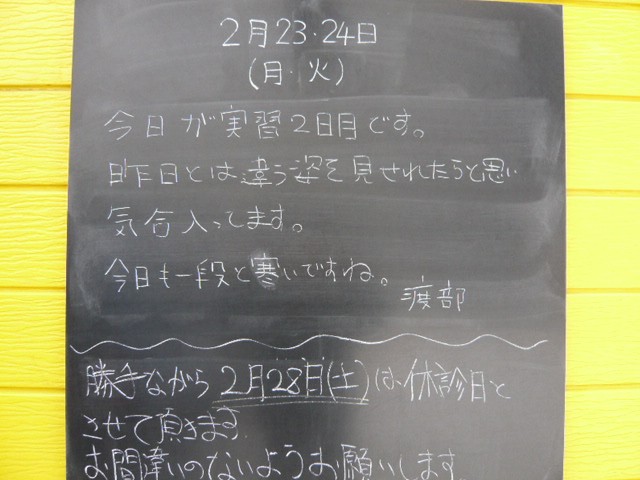 2月23・24日
(月・火)
今日が実習2日目です。
昨日とは違う姿を見せれたらと思い
気合入ってます。
今日も一段と寒いですね。
渡部
勝手ながら2月28日(土)は、休診日と
させて頂きます
お間違いのないようお願いします。